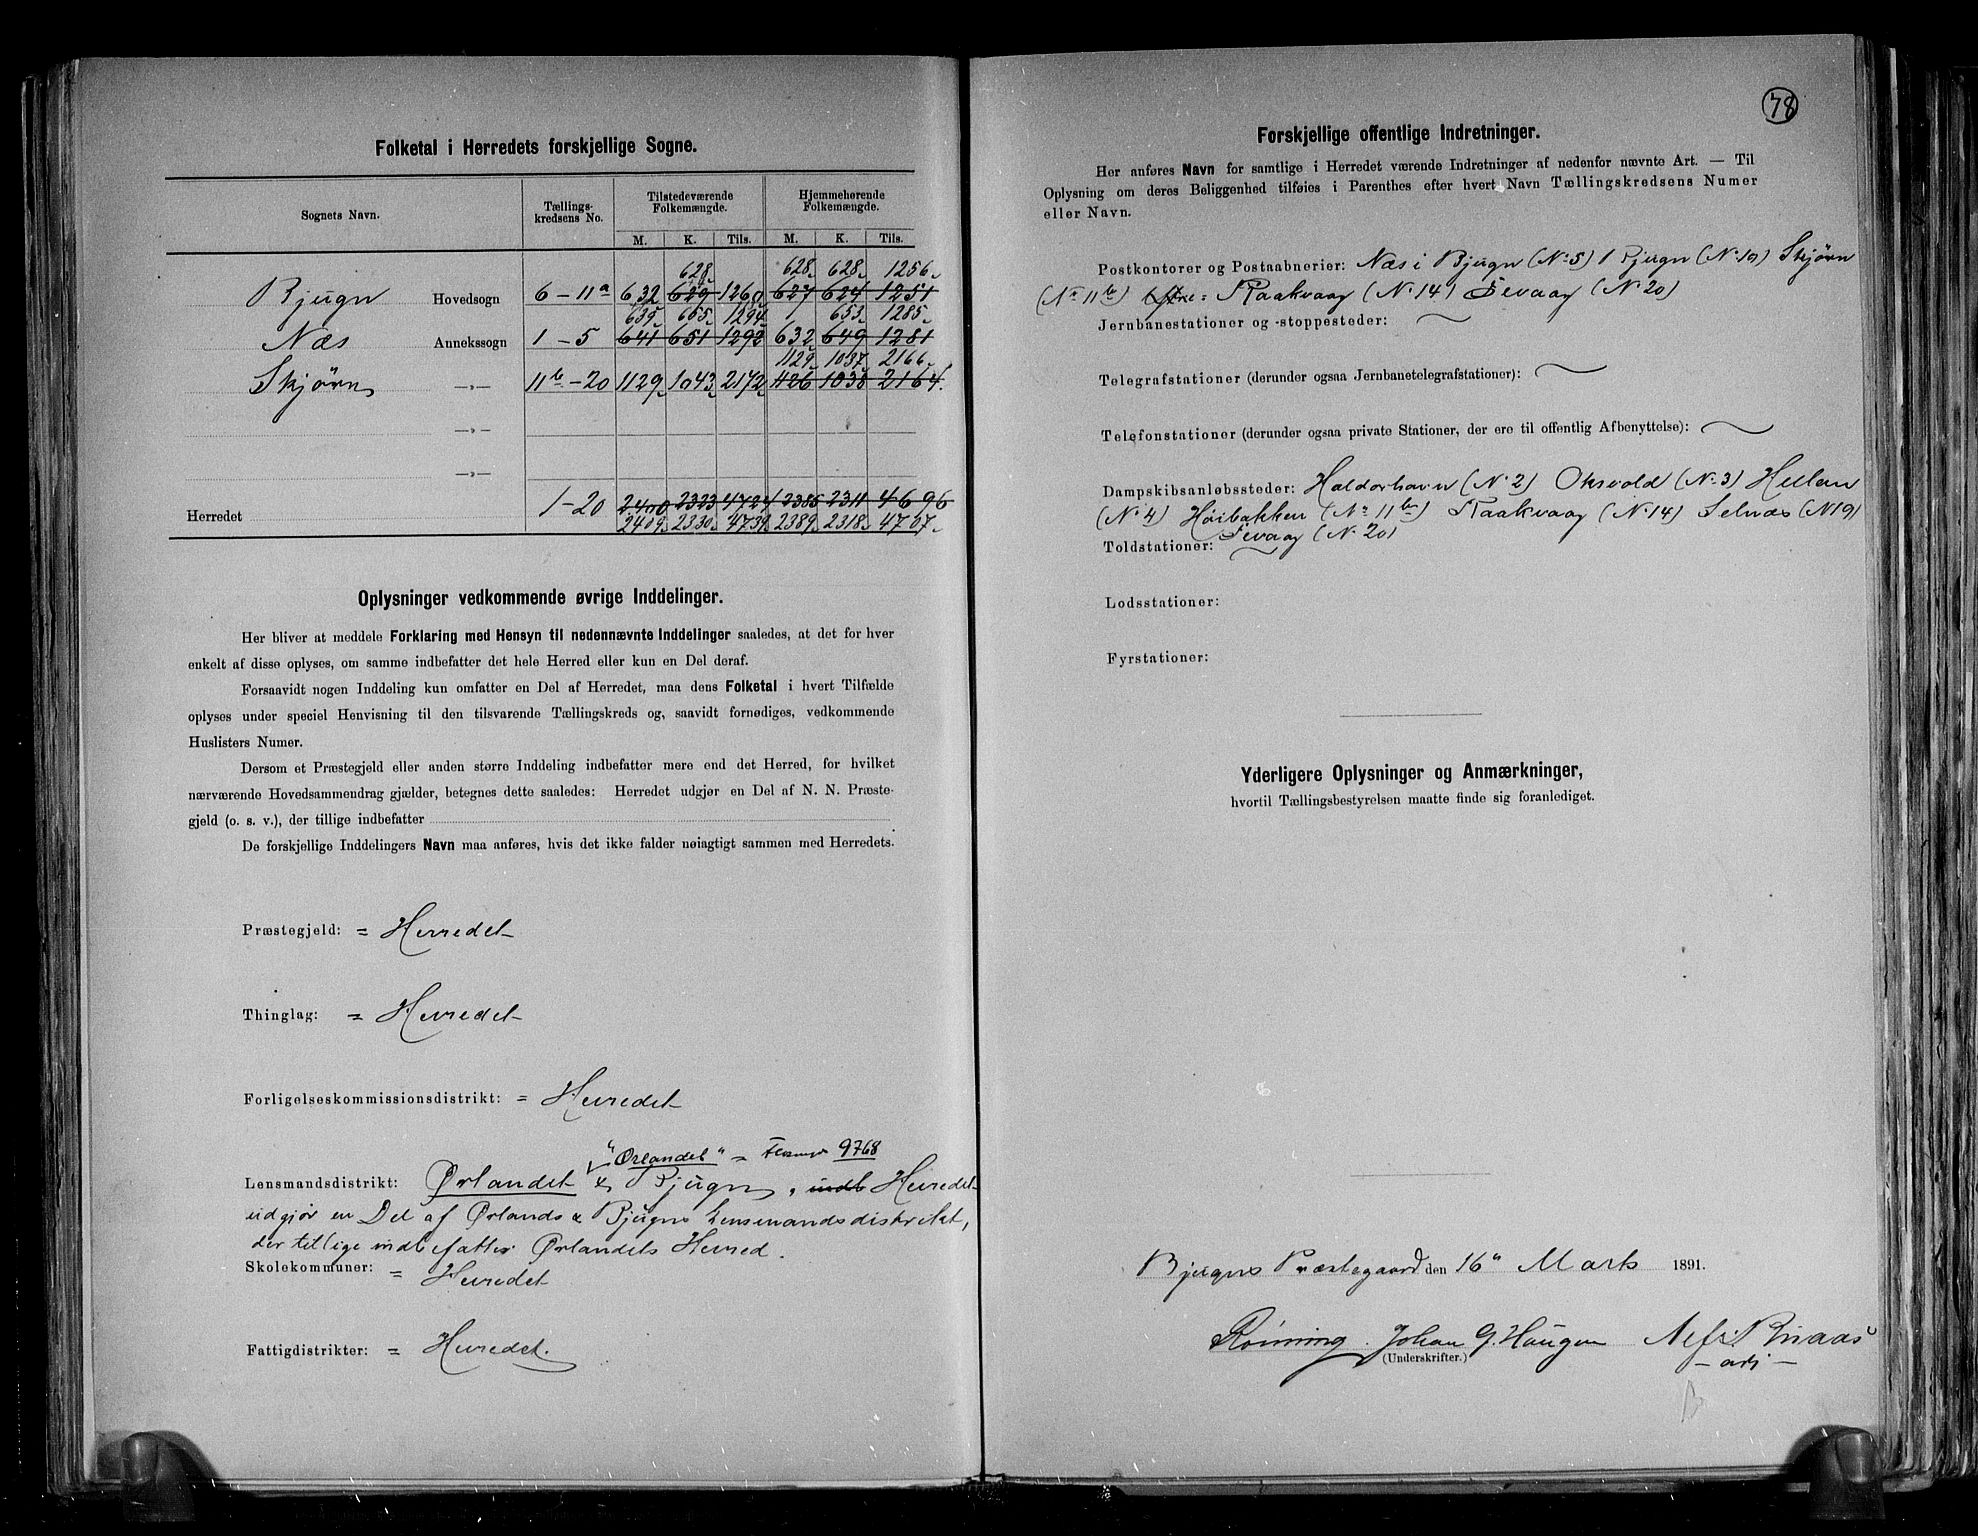 Folketal i Herredets forskjellige Sogne.
Sognets Navn. Tællings-kredsens No. Tilstedeværende Folkemængde. Hjemmehørende Folkemængde.
M. K. Tils. M. K. Tils.
628 628 628 1256
Bjugn Hovedsogn 6-11a 632 629 1260 627 624 1251
635 655 1294 653 1285
Næs Annekssogn 1-5 641 651 1292 632 649 1281
1129 1037 2166
Skjørn —„— 11b-20 1129 1043 2172 1126 1038 2164
—„—
—„—
Herredet 1-20 2400 2323 4724 2385 2311 4696
2409 2330 4739 2389 2318 4707
Oplysninger vedkommende øvrige Inddelinger.
Her bliver at meddele Forklaring med Hensyn til nedennævnte Inddelinger saaledes, at det for hver
enkelt af disse oplyses, om samme indbefatter det hele Herred eller kun en Del deraf.
Forsaavidt nogen Inddeling kun omfatter en Del af Herredet, maa dens Folketal i hvert Tilfælde
oplyses under speciel Henvisning til den tilsvarende Tællingskreds og, saavidt fornødiges, vedkommende
Huslisters Numer.
Dersom et Præstegjeld eller anden større Inddeling indbefatter mere end det Herred, for hvilket
nærværende Hovedsammendrag gjælder, betegnes dette saaledes: Herredet udgjør en Del af N. N. Præste-
gjeld (o. s. v.), der tillige indbefatter
De forskjellige Inddelingers Navn maa anføres, hvis det ikke falder nøiagtigt sammen med Herredets.
Præstegjeld: = Herredet
Thinglag: = Herredet
Forligelseskommissionsdistrikt: = Herredet
"Ørlandet" = 9768
Lensmandsdistrikt: Ørlandet & Bjugn, indb Herredet
udgjør en Del af Ørlands & Bjugns Lensmandsdistrikt,
der tillige indbefatter Ørlandets Herred.
Skolekommuner: = Herredet
Fattigdistrikter: = Herredet.
78
Forskjellige offentlige Indretninger.
Her anføres Navn for samtlige i Herredet værende Indretninger af nedenfor nævnte Art. — Til
Oplysning om deres Beliggenhed tilføies i Parenthes efter hvert Navn Tællingskredsens Numer
eller Navn.
Postkontorer og Postaabnerier: Næs i Bjugn (No 5) Bjugn (No 10) Skjørn
(No 11b) Raakvaag (No 14) Sevaag (No 20)
Jernbanestationer og -stoppesteder:
Telegrafstationer (derunder ogsaa Jernbanetelegrafstationer):
Telefonstationer (derunder ogsaa private Stationer, der ere til offentlig Afbenyttelse):
Dampskibsanløbssteder: Haldorhavn (No 2) Oksvold (No 3) Hellan
(No 4) Høibakken (No 11b) Raakvaag (No 14) Selnæs (N 19)
Sevaag (No 20)
Toldstationer:
Lodsstationer:
Fyrstationer:
Yderligere Oplysninger og Anmærkninger,
hvortil Tællingsbestyrelsen maatte finde sig foranlediget.
Bjugns Præstegaard den 16" Marts 1891.
Rønning. Johan G. Haugen
(Underskrifter.)